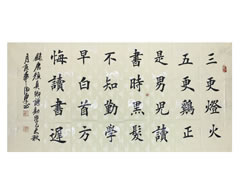 三更燈火
五更雞正
是男兒讀
書時黑髮
不知勤學
早白首方
悔讀書遲
錄唐顏真卿詩